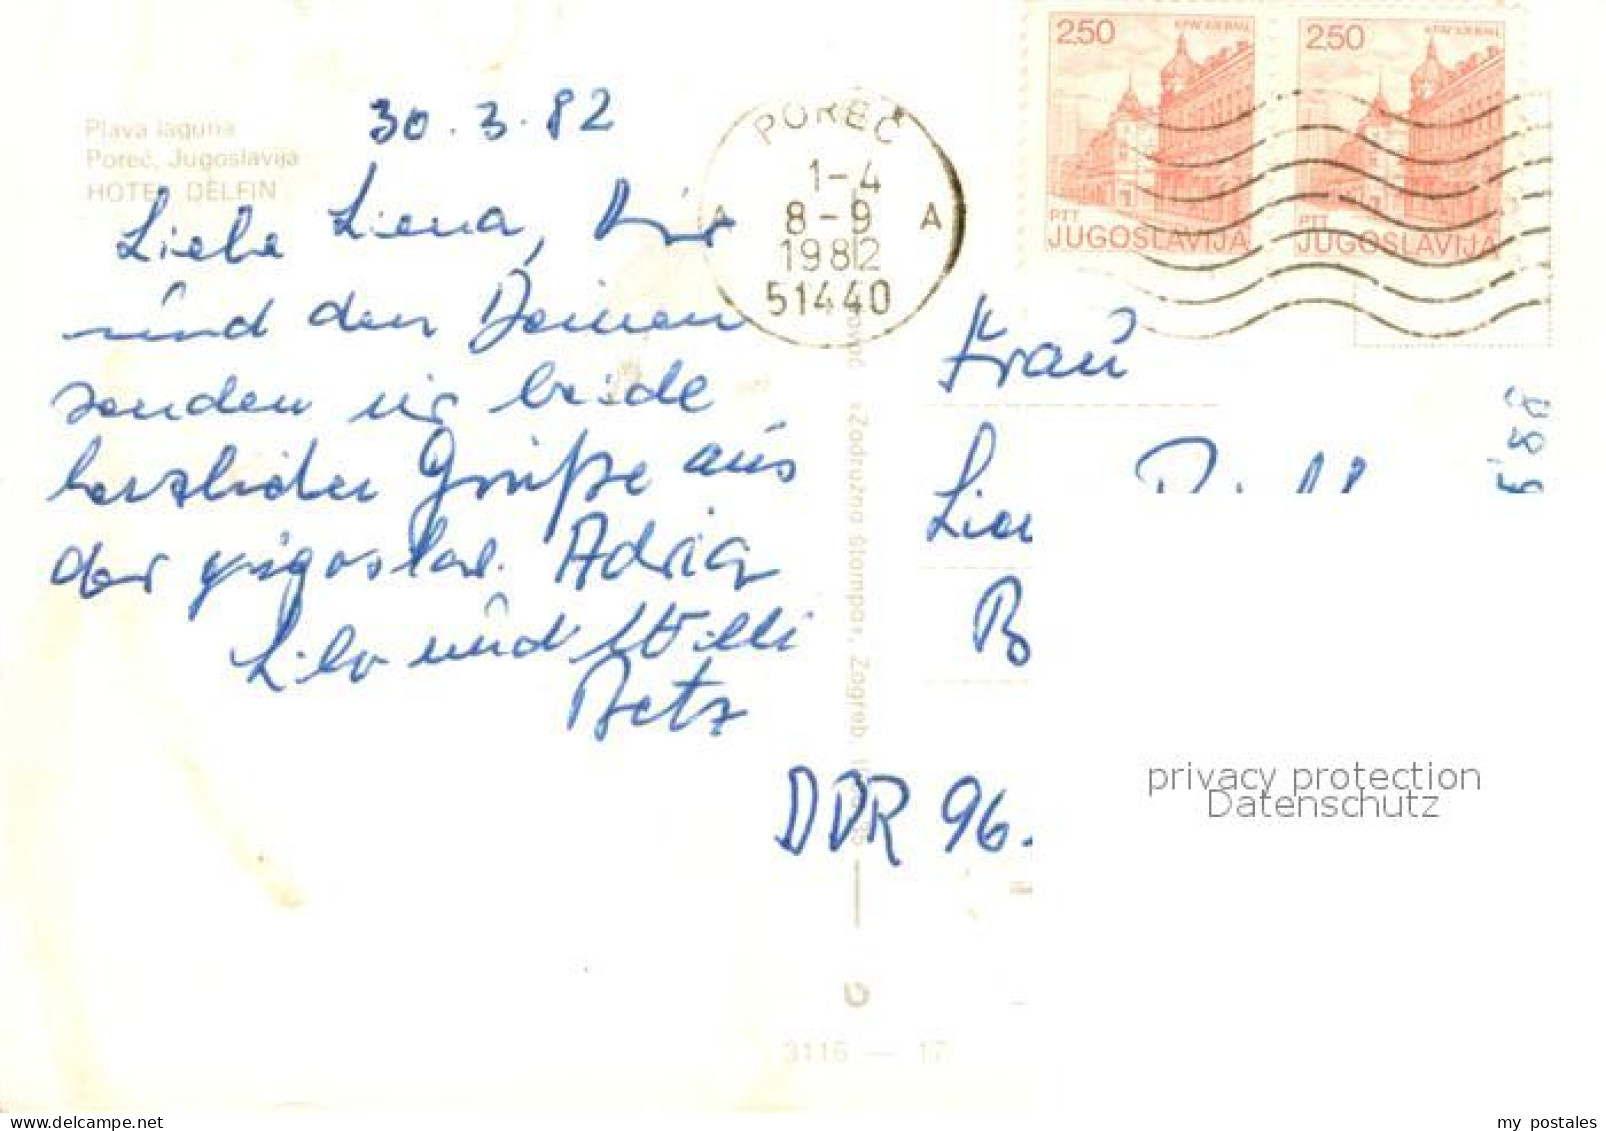 Plava laguna
Poreč, Jugoslavija
HOTEL DELFIN
30.3.82
Liebe Liena, Dir
und den Deinen
senden wir beide
herzliche Grüße aus
der jugoslav. Adria
Lilo und Willi
Betz
POREČ
1-4
A 8-9 A
1982
51440
2,50 КРАГУЈЕВАЦ
PTT
JUGOSLAVIJA
2,50 КРАГУЈЕВАЦ
PTT
JUGOSLAVIJA
Frau
B
DDR 96.
»Zadružna štampa«, Zagreb
3116 — 17
privacy protection
Datenschutz
my postales